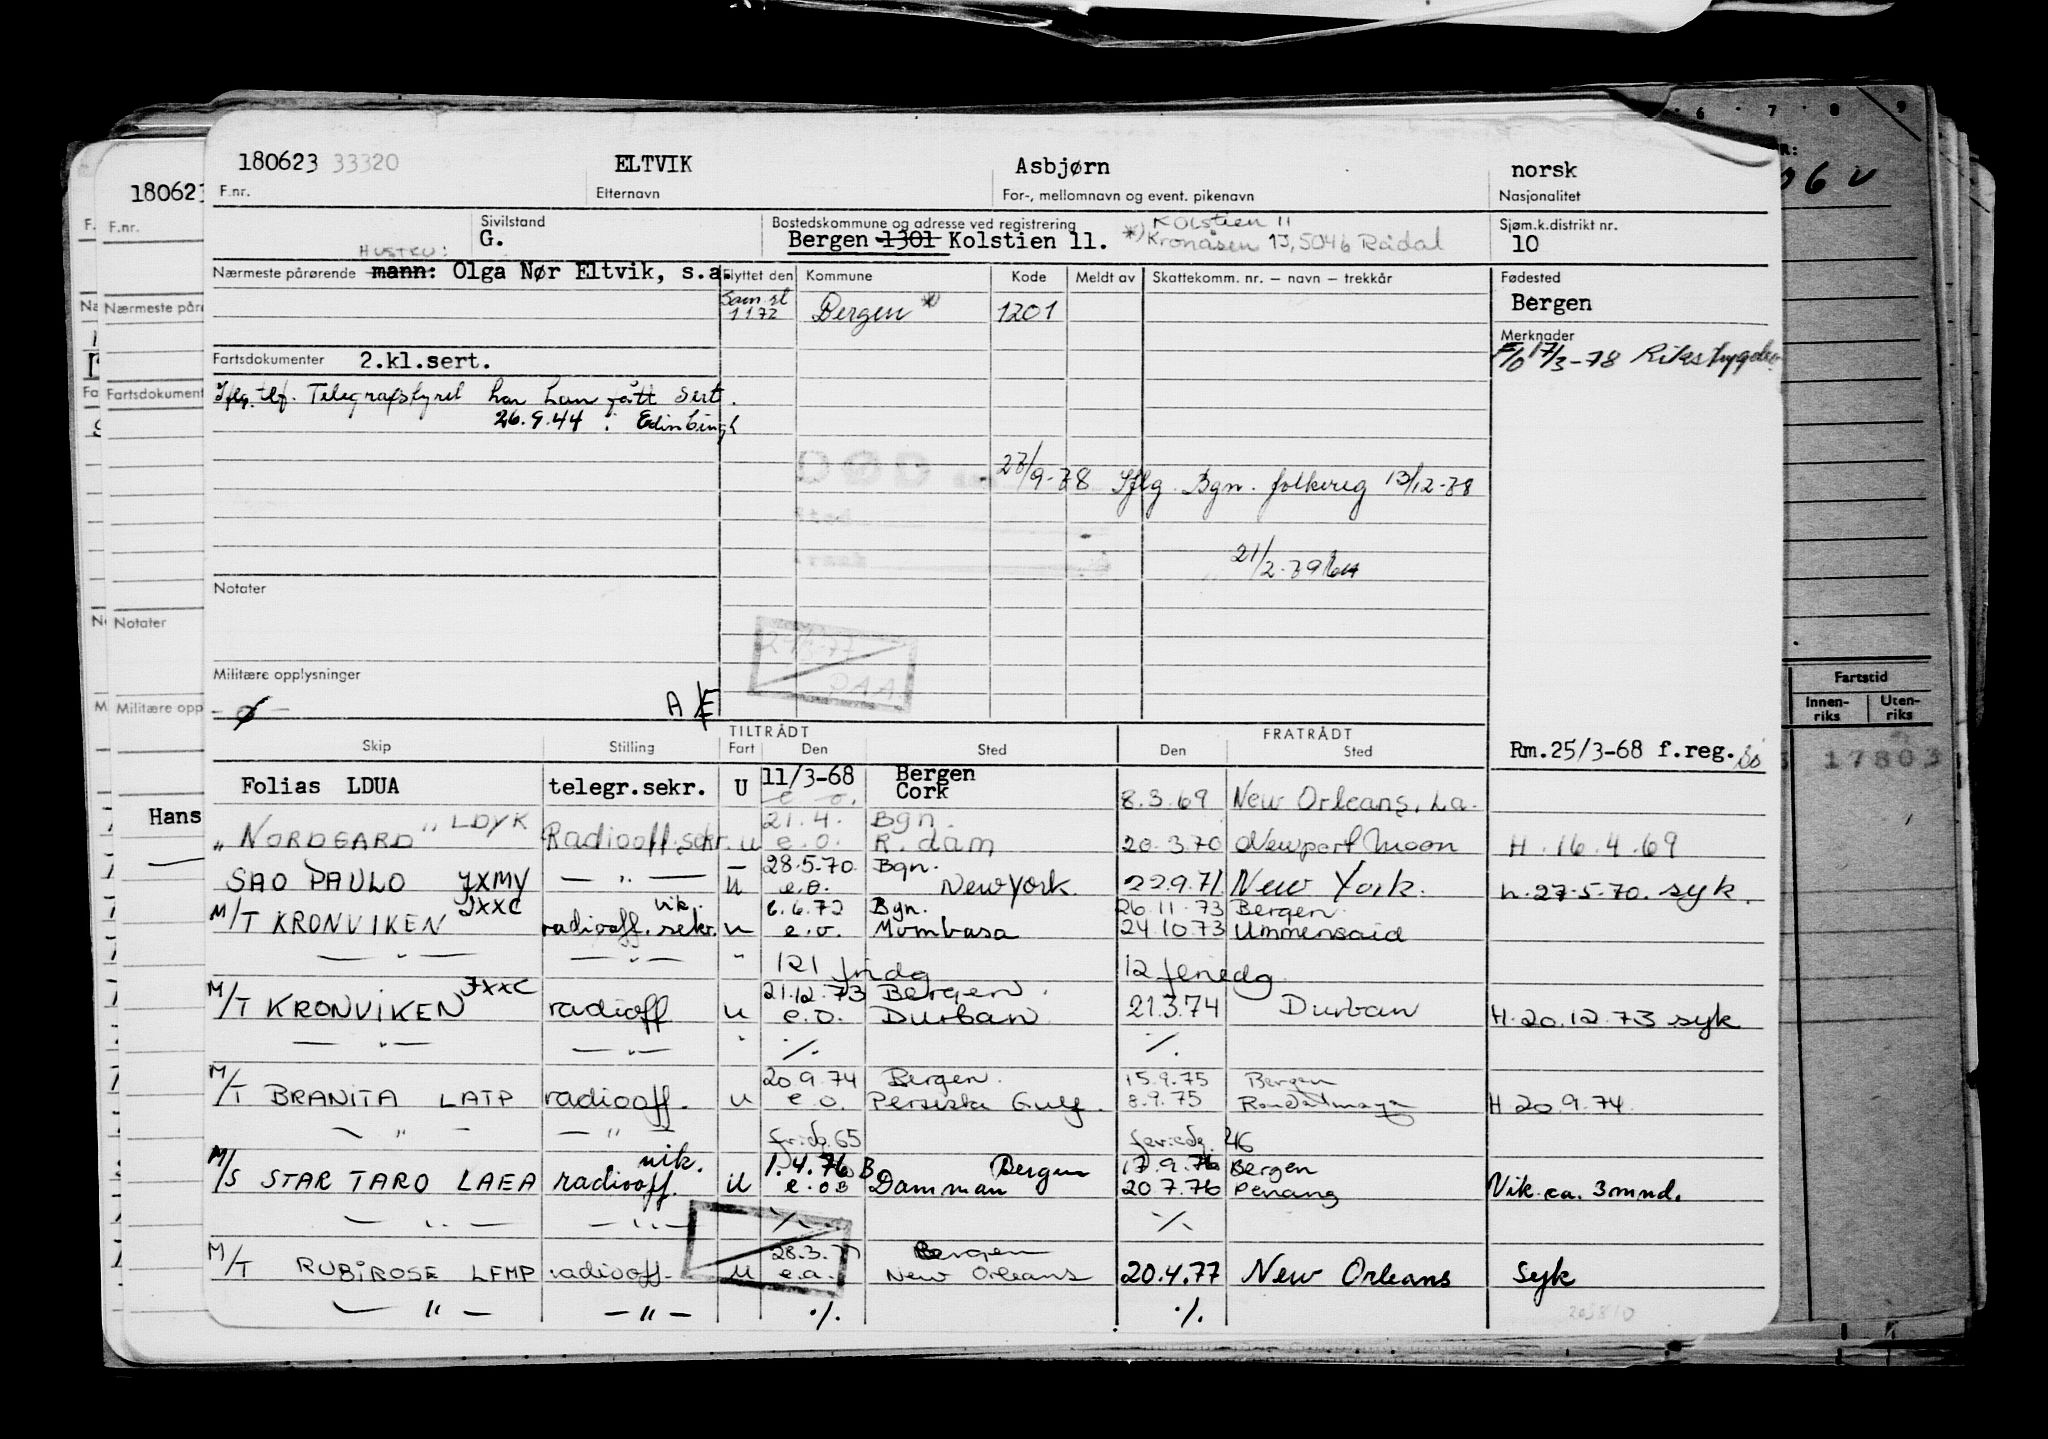 180623 33320 ELTVIK Asbjørn norsk
F.nr. Etternavn For-, mellomnavn og event. pikenavn Nasjonalitet
Sivilstand Bostedskommune og adresse ved registrering Kolstien 11 Sjøm.k.distrikt nr.
G. Bergen 1301 Kolstien 11. *) Kronåsen 13, 5046 Rådal 10
HUSTRU:
Nærmeste pårørende mann: Olga Nør Eltvik, s.a. Flyttet den Kommune Kode Meldt av Skattekomm. nr. – navn – trekkår Fødested
Sam.st 1172 Bergen *) 1201 Bergen
Merknader
F/O 17/3-78 Rikstrygden
Fartsdokumenter 2.kl.sert.
Iflg. tlf. Telegrafstyret har han fått sert.
26.9.44 i Edinburgh
27/9-78 Iflg. Bgn. folkereg 13/12-78
21/2-79
Notater
Militære opplysninger
A
TILTRÅDT FRATRÅDT
Skip Stilling Fart Den Sted Den Sted Rm.25/3-68 f.reg.
Folias LDUA telegr.sekr. U 11/3-68 Bergen
e.o. Cork 8.3.69 New Orleans, La.
21.4. Bgn.
"NORDGARD" LDYK Radiooff.sekr. u e.o. R.dam 20.3.70 Newport Moon H.16.4.69
28.5.70 Bgn.
SAO PAULO JXMY — " — U e.o. New York 22.9.71 New York. h.27-5-70. syk.
JXXC vik. 6.6.72 Bgn. 26.11.73 Bergen
M/T KRONVIKEN radiooff. sekr. u e.o. Mombasa 24.10.73 Ummensaid
— " — — " — " 121 fridg 12 feriedg
JXXC 21.12.73 Bergen.
M/T KRONVIKEN radiooff u e.o. Durban 21.3.74 Durban H.20.12.73 syk
— " — — " — " ./. ./.
20.9.74 Bergen. 15.9.75 Bergen
M/T BRANITA LATP radiooff. u e.o. Persiske Gulf. 8.9.75 H 20.9.74
— " — — " — fridg. 65 feriedg. 46
vik. 1.4.76 Bergen 17.9.76 Bergen
M/S STAR TARO LAEA radiooff. U e.o Damman 20.7.76 Penang Vik. ca. 3 mnd.
— " — — " — ./. ./.
28.3.77 Bergen
M/T RUBIROSE LFMP radiooff. U e.o. New Orleans 20.4.77 New Orleans Syk
— " — — " — ./. ./.
180623
F.nr.
Nærmeste pår
Fartsdokument
Notater
Militære opp
Hans
6 7 8 9
Fartstid
Innen-riks Uten-riks
17803